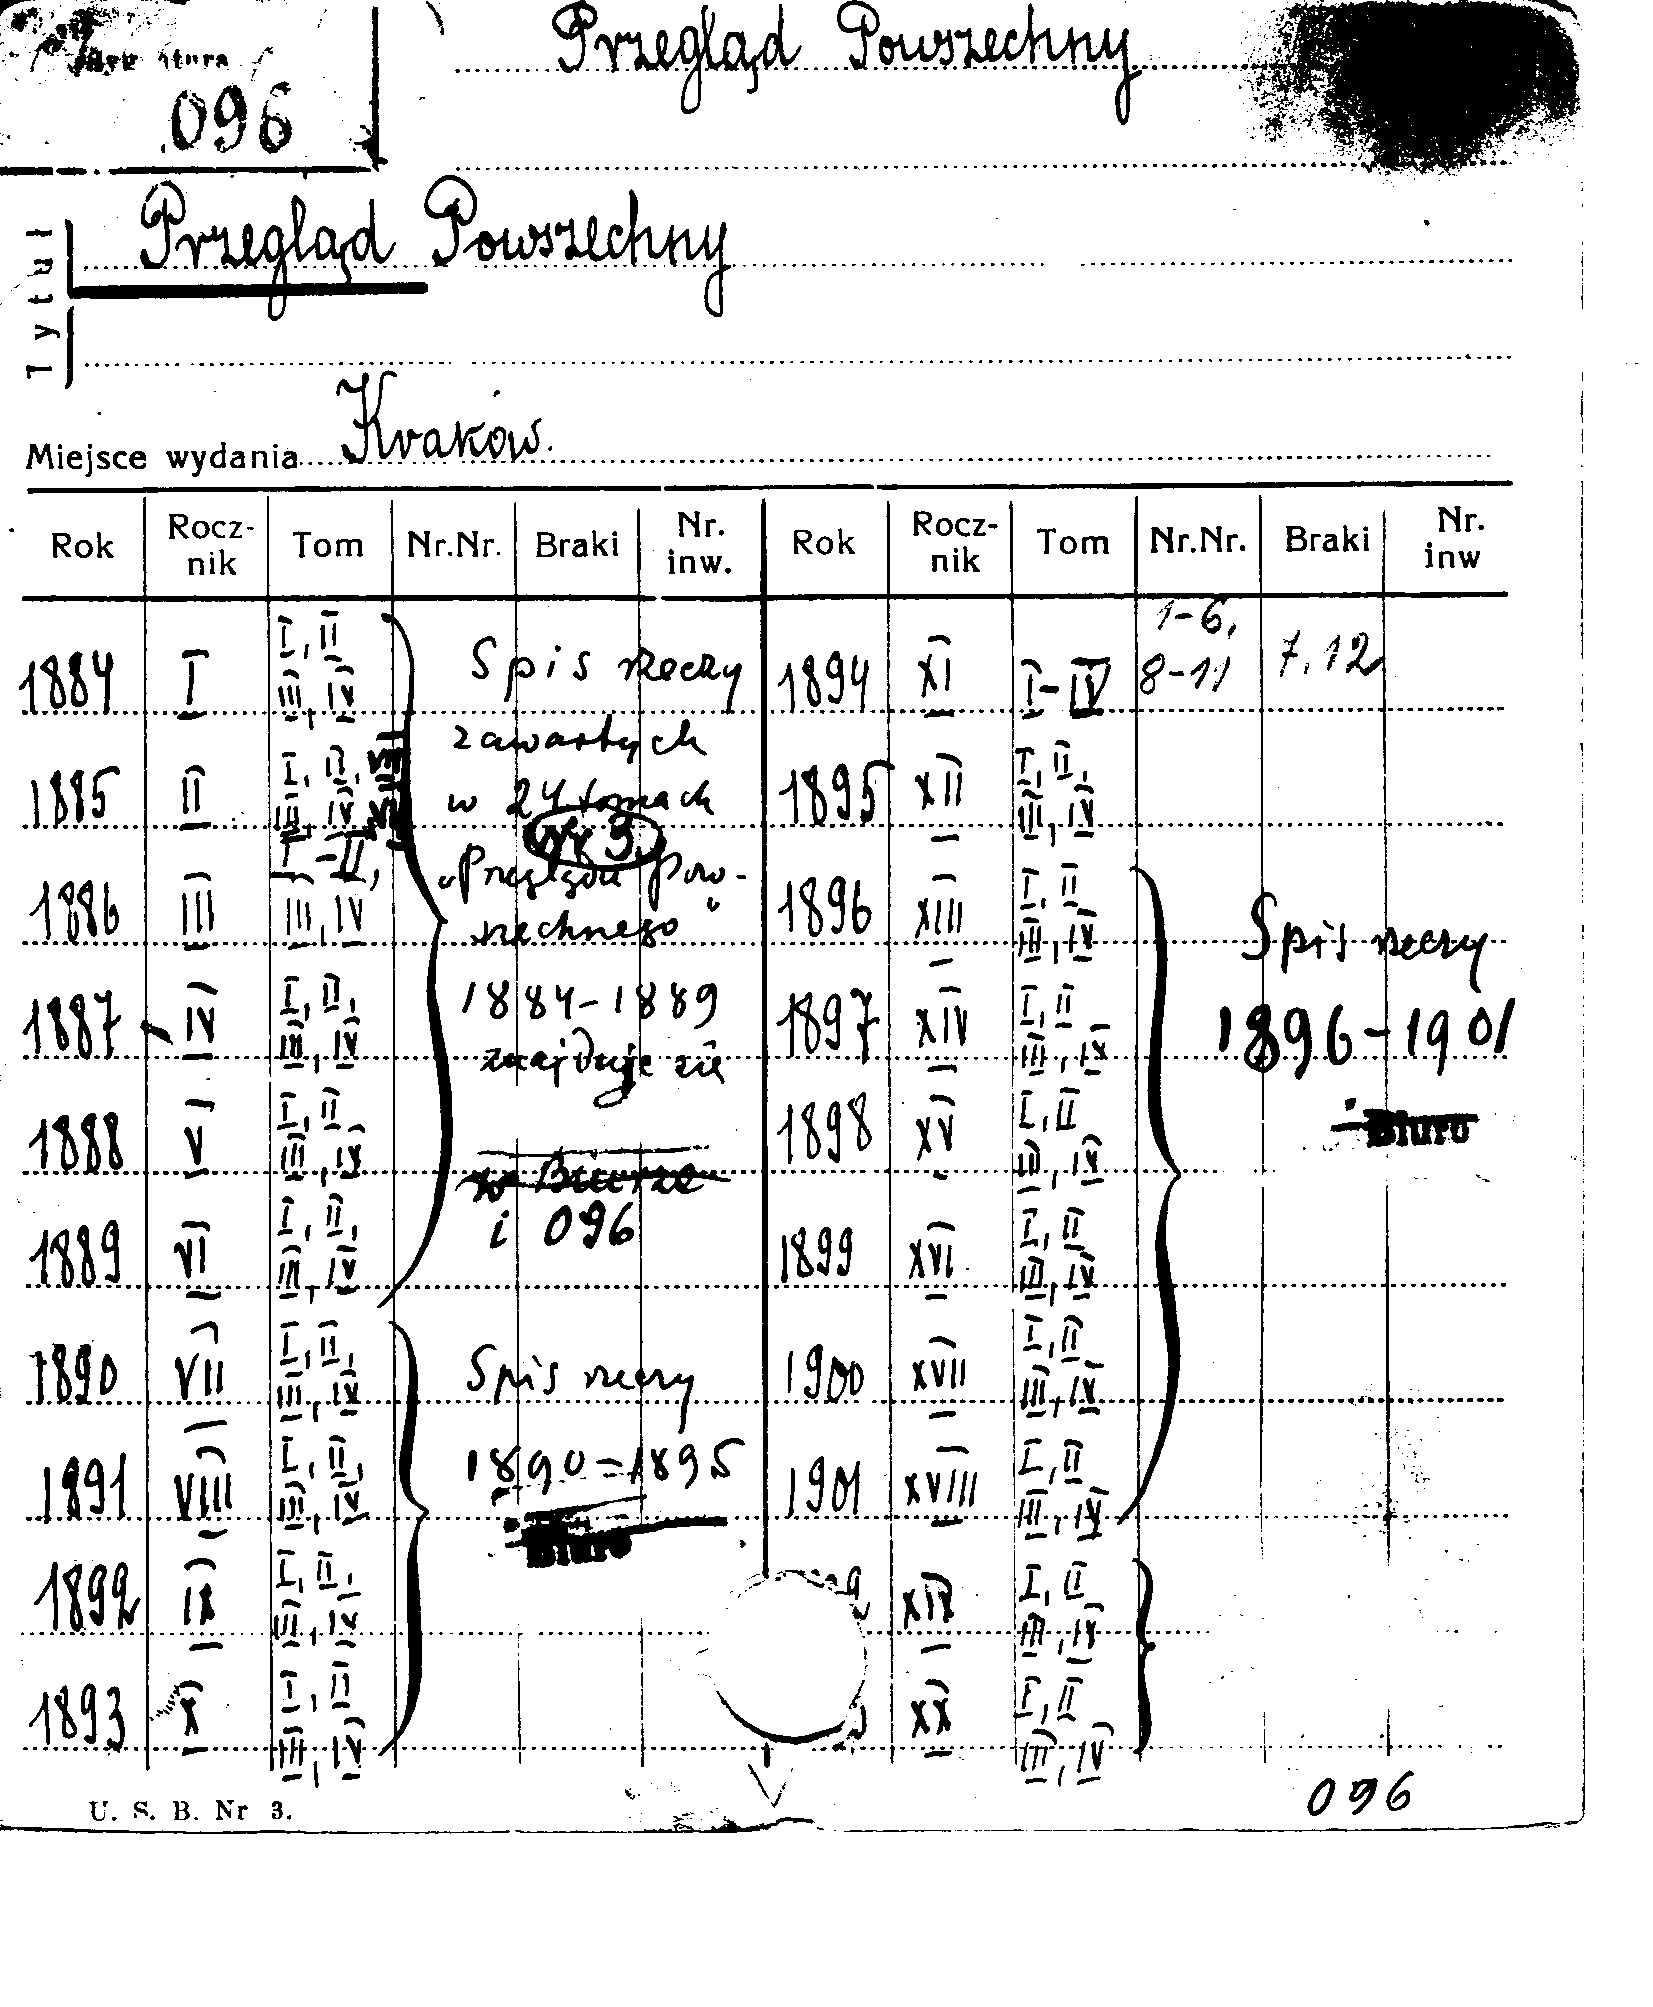 096
Przegląd Powszechny
Tytuł
Przegląd Powszechny
Miejsce wydania Kraków.
Rok Rocz-nik Tom Nr.Nr. Braki Nr. inw. Rok Rocz-nik Tom Nr.Nr. Braki Nr. inw
1884 I I, II III, IV
1885 II I, II, III, IV
1886 III I-II, III, IV
1887 IV I, II, III, IV
1888 V I, II III, IV
1889 VI I, II, III, IV
1890 VII I, II, III, IV
1891 VIII I, II, III, IV
1892 IX I, II, III, IV
1893 X I, II III, IV
Spis rzeczy
zawartych
w 24 tomach
Nr 3.
„Przeglądu Pow-
szechnego"
1884-1889
znajduje się
w Biurze
i 096
Spis rzeczy
1890-1895
Biuro
1894 XI I-IV 1-6, 8-11 7.12
1895 XII I, II, III, IV
1896 XIII I, II III, IV
1897 XIV I, II III, IV
1898 XV I, II III, IV
1899 XVI I, II III, IV
1900 XVII I, II III, IV
1901 XVIII I, II III, IV
XIX I, II III, IV
XX I, II III, IV
Spis rzeczy
1896-1901
Biuro
U. S. B. Nr 3.
096